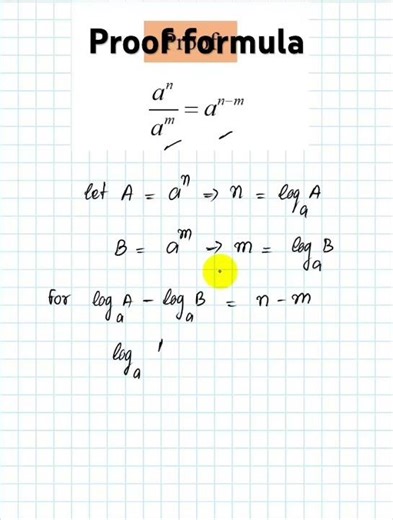 Proof formula
Proof:
a^n / a^m = a^(n-m)
let A = a^n => n = log_a A
B = a^m -> m = log_a B
For log_a A - log_a B = n - m
log_a